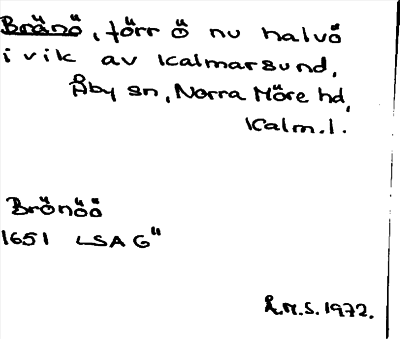 Bränö, förr ö nu halvö
i vik av Kalmarsund,
Åby sn, Norra Möre hd,
Kalm. l.
Brönöö
1651 LSA G"
Å.M.S. 1972.